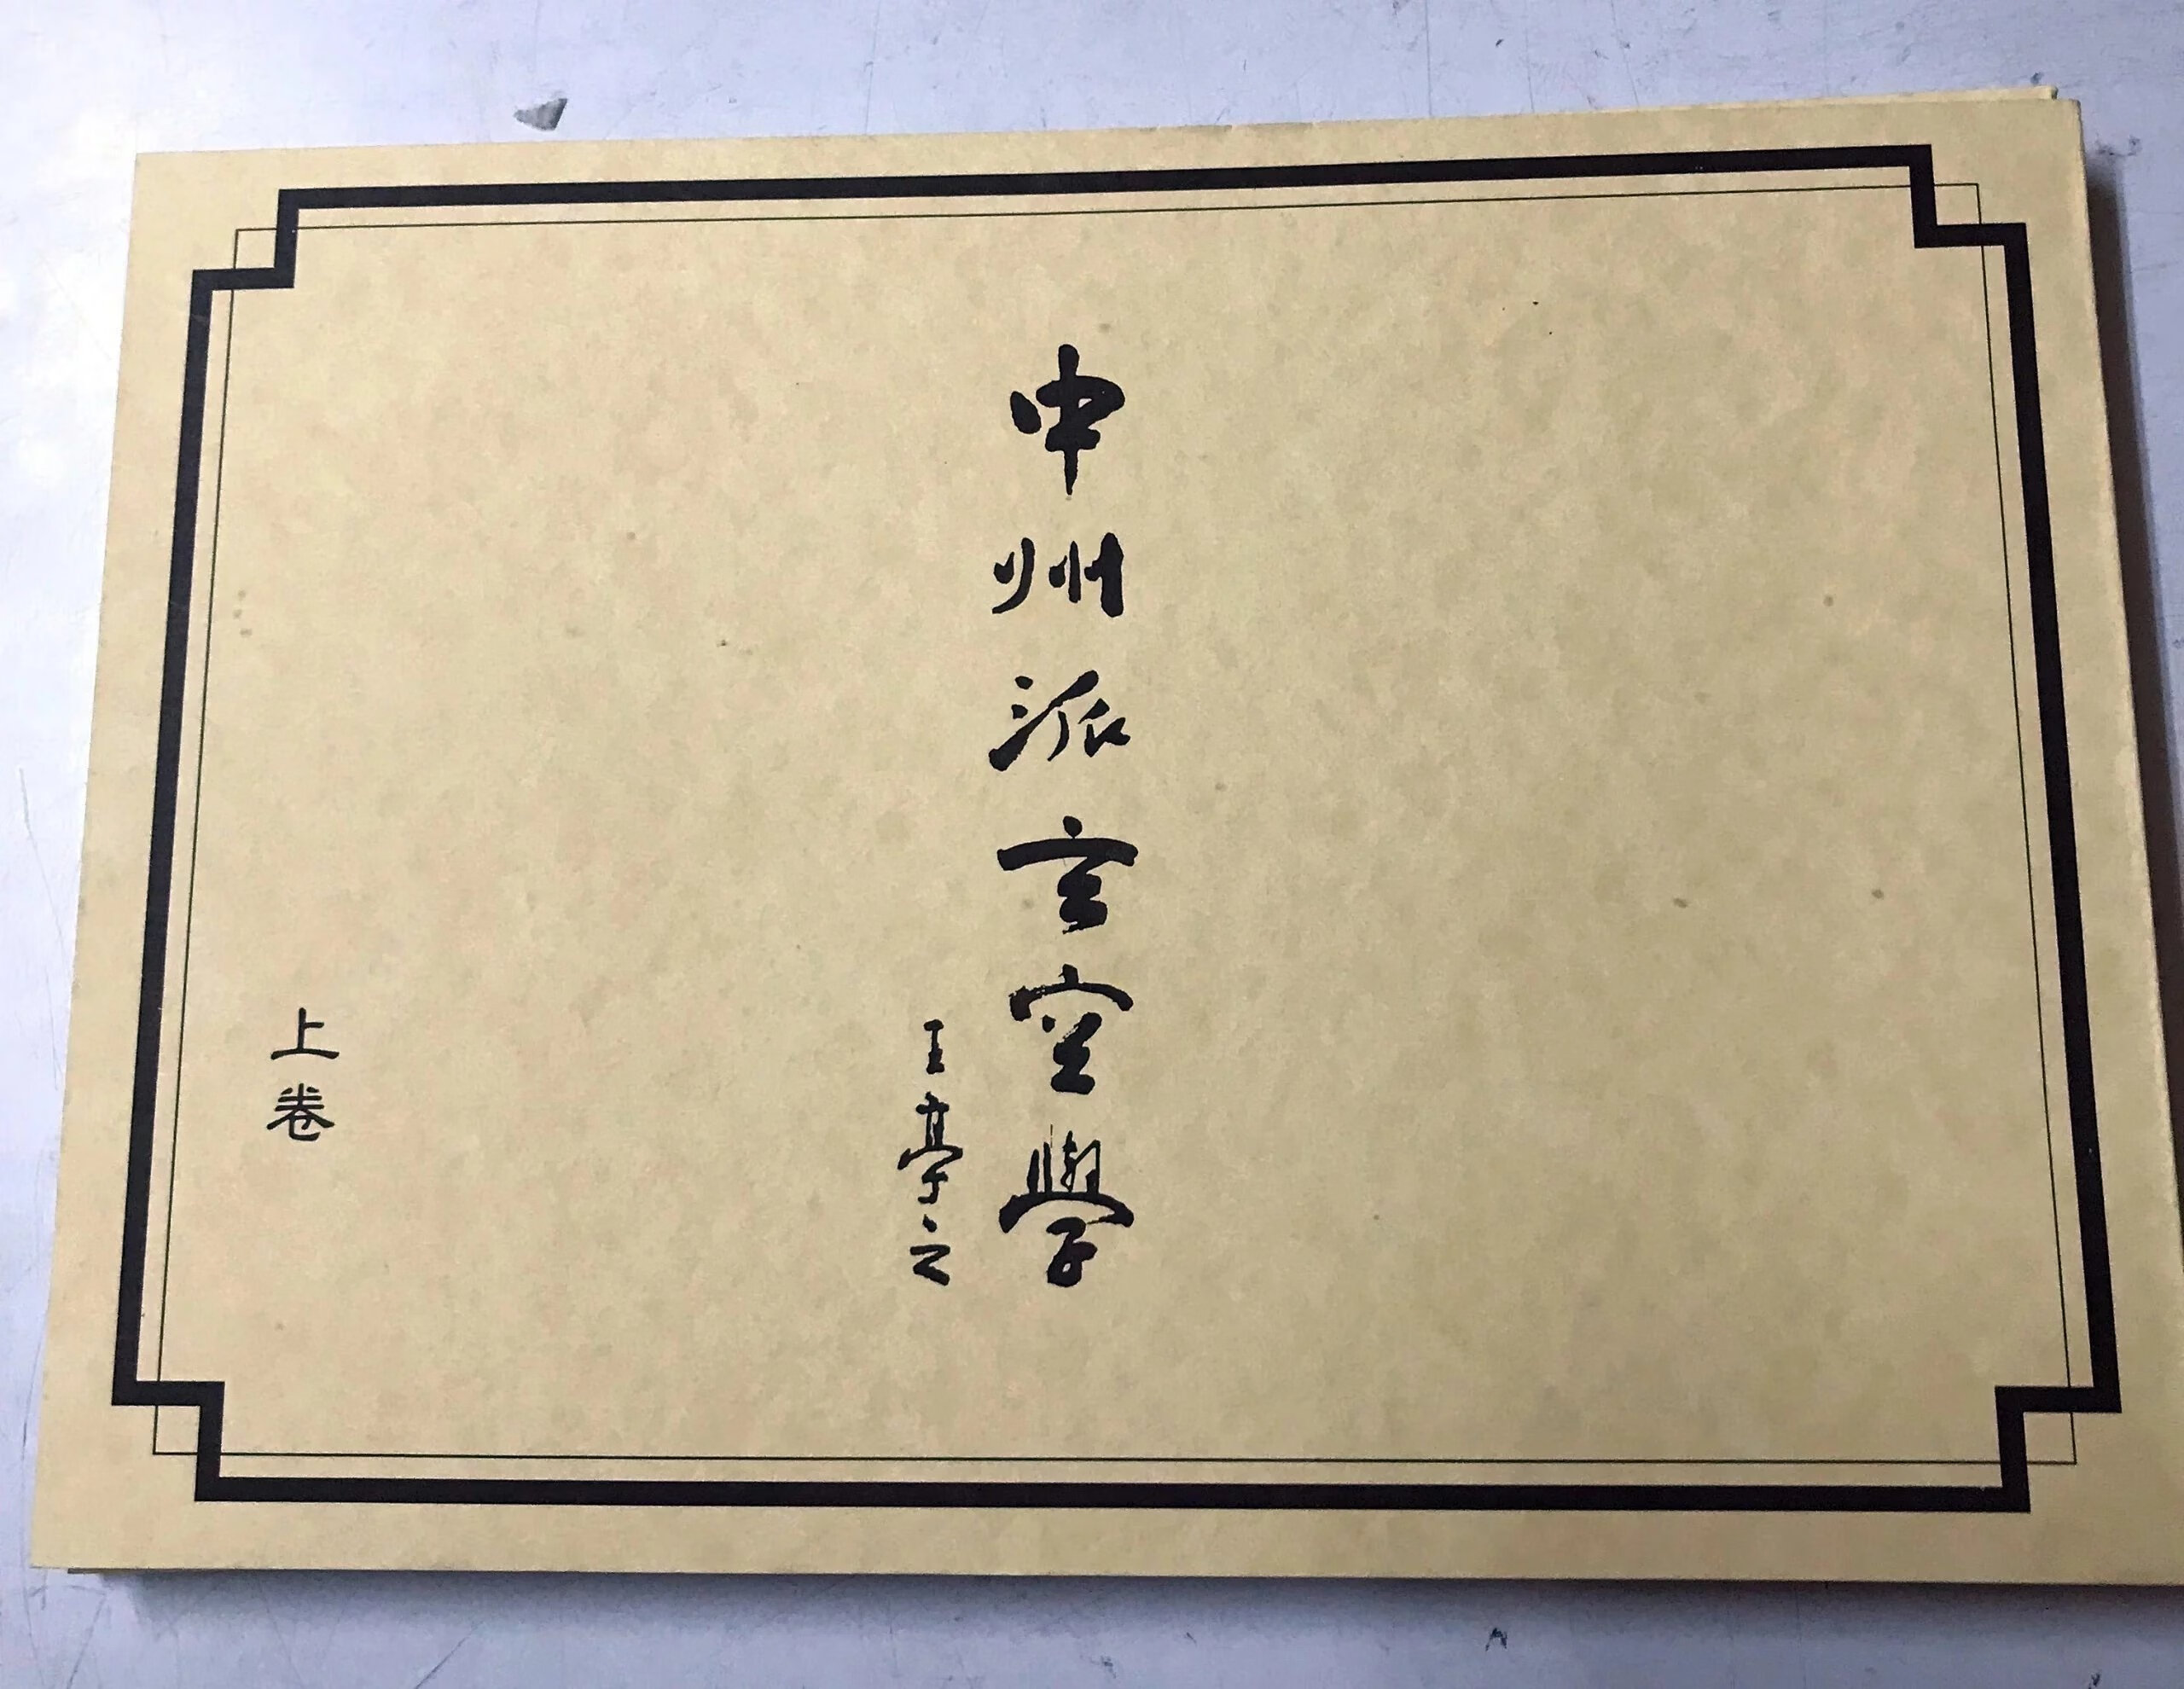 中州派玄空學
王亭之
上卷